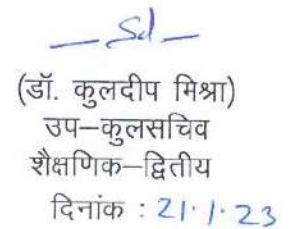 — Sd —
(डॉ. कुलदीप मिश्रा)
उप–कुलसचिव
शैक्षणिक–द्वितीय
दिनांक : 21.1.23